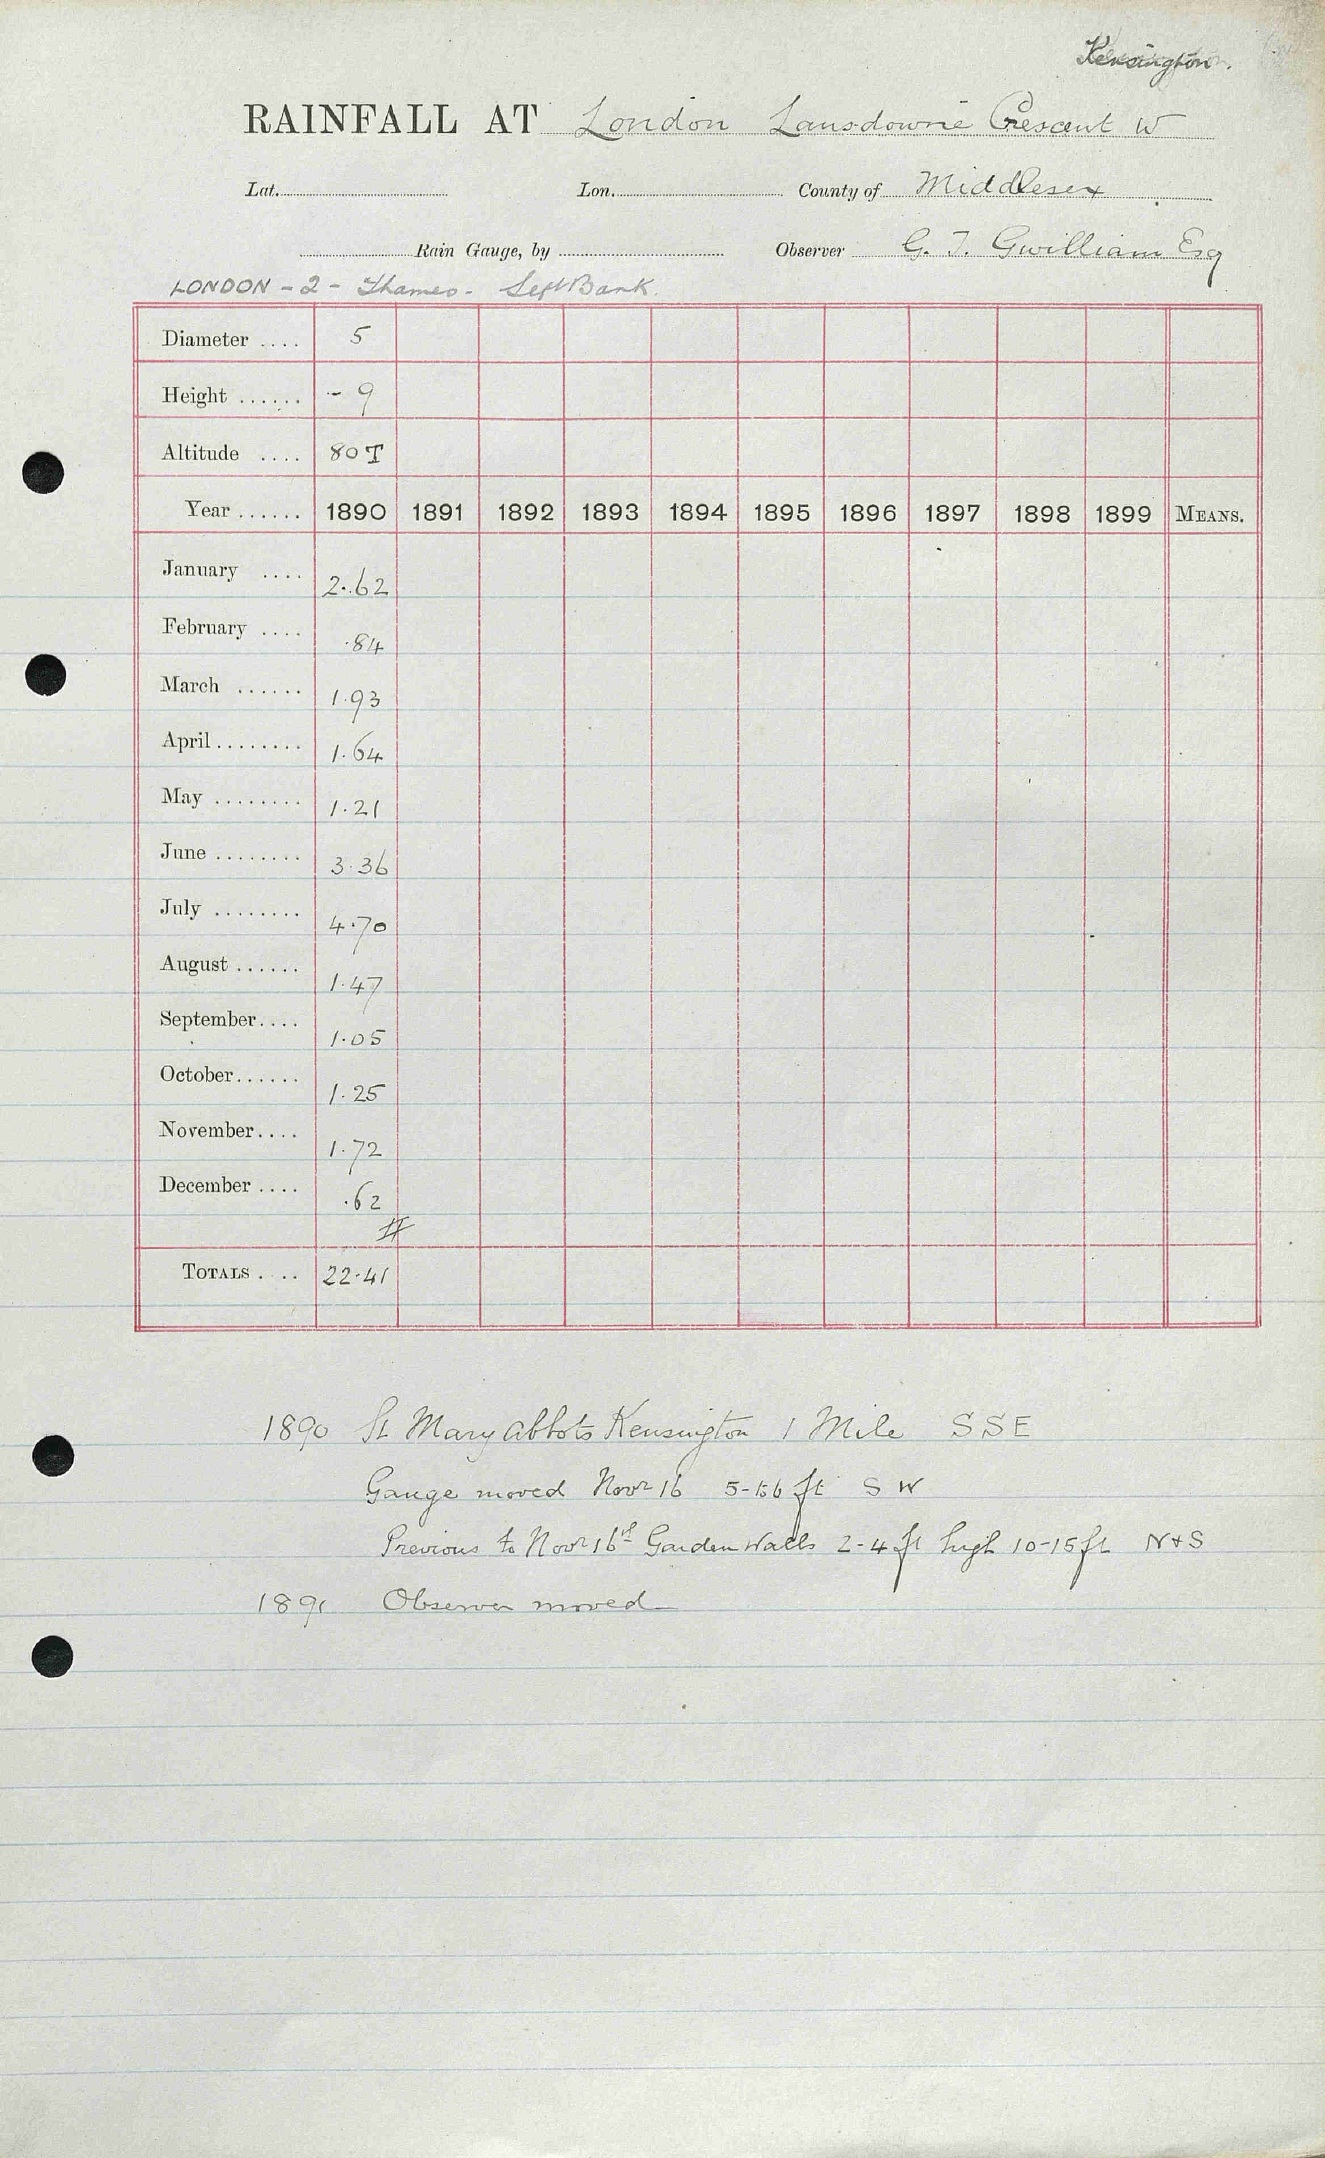 Kensington.
RAINFALL AT London Lansdowne Crescent W
Lat. Lon. County of Middlesex
Rain Gauge, by Observer G. T. Gwilliam Esq
LONDON - 2 - Thames - Left Bank.
Diameter .... 5
Height ...... - 9
Altitude .... 80 T
Year ...... 1890 1891 1892 1893 1894 1895 1896 1897 1898 1899 MEANS.
January .... 2.62
February .... .84
March ...... 1.93
April ........ 1.64
May ........ 1.21
June ........ 3.36
July ........ 4.70
August ...... 1.47
September .... 1.05
October ...... 1.25
November .... 1.72
December .... .62
#
TOTALS .... 22.41
1890 St Mary Abbots Kensington 1 Mile SSE
Gauge moved Novr 16 ft S W
Previous to Novr 16th Garden Walls 2-4 ft high 10-15 ft N + S
1891 Observer moved